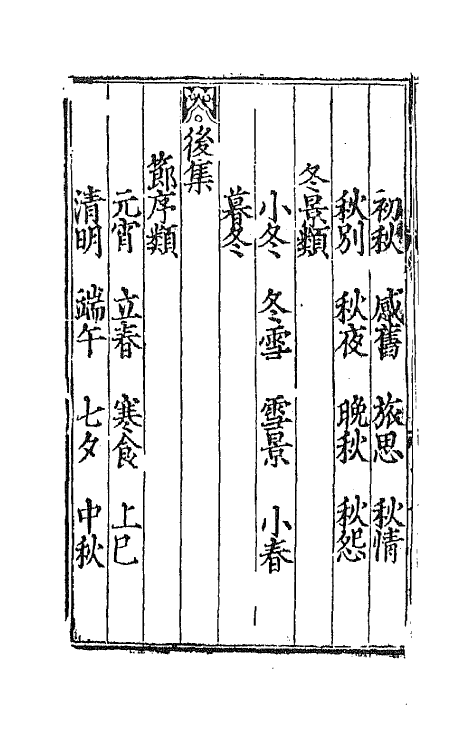 初秋 感舊 旅思 秋情
秋別 秋夜 晚秋 秋怨
冬景類
小冬 冬雪 雪景 小春
暮冬
後集
節序類
元宵 立春 寒食 上巳
清明 端午 七夕 中秋